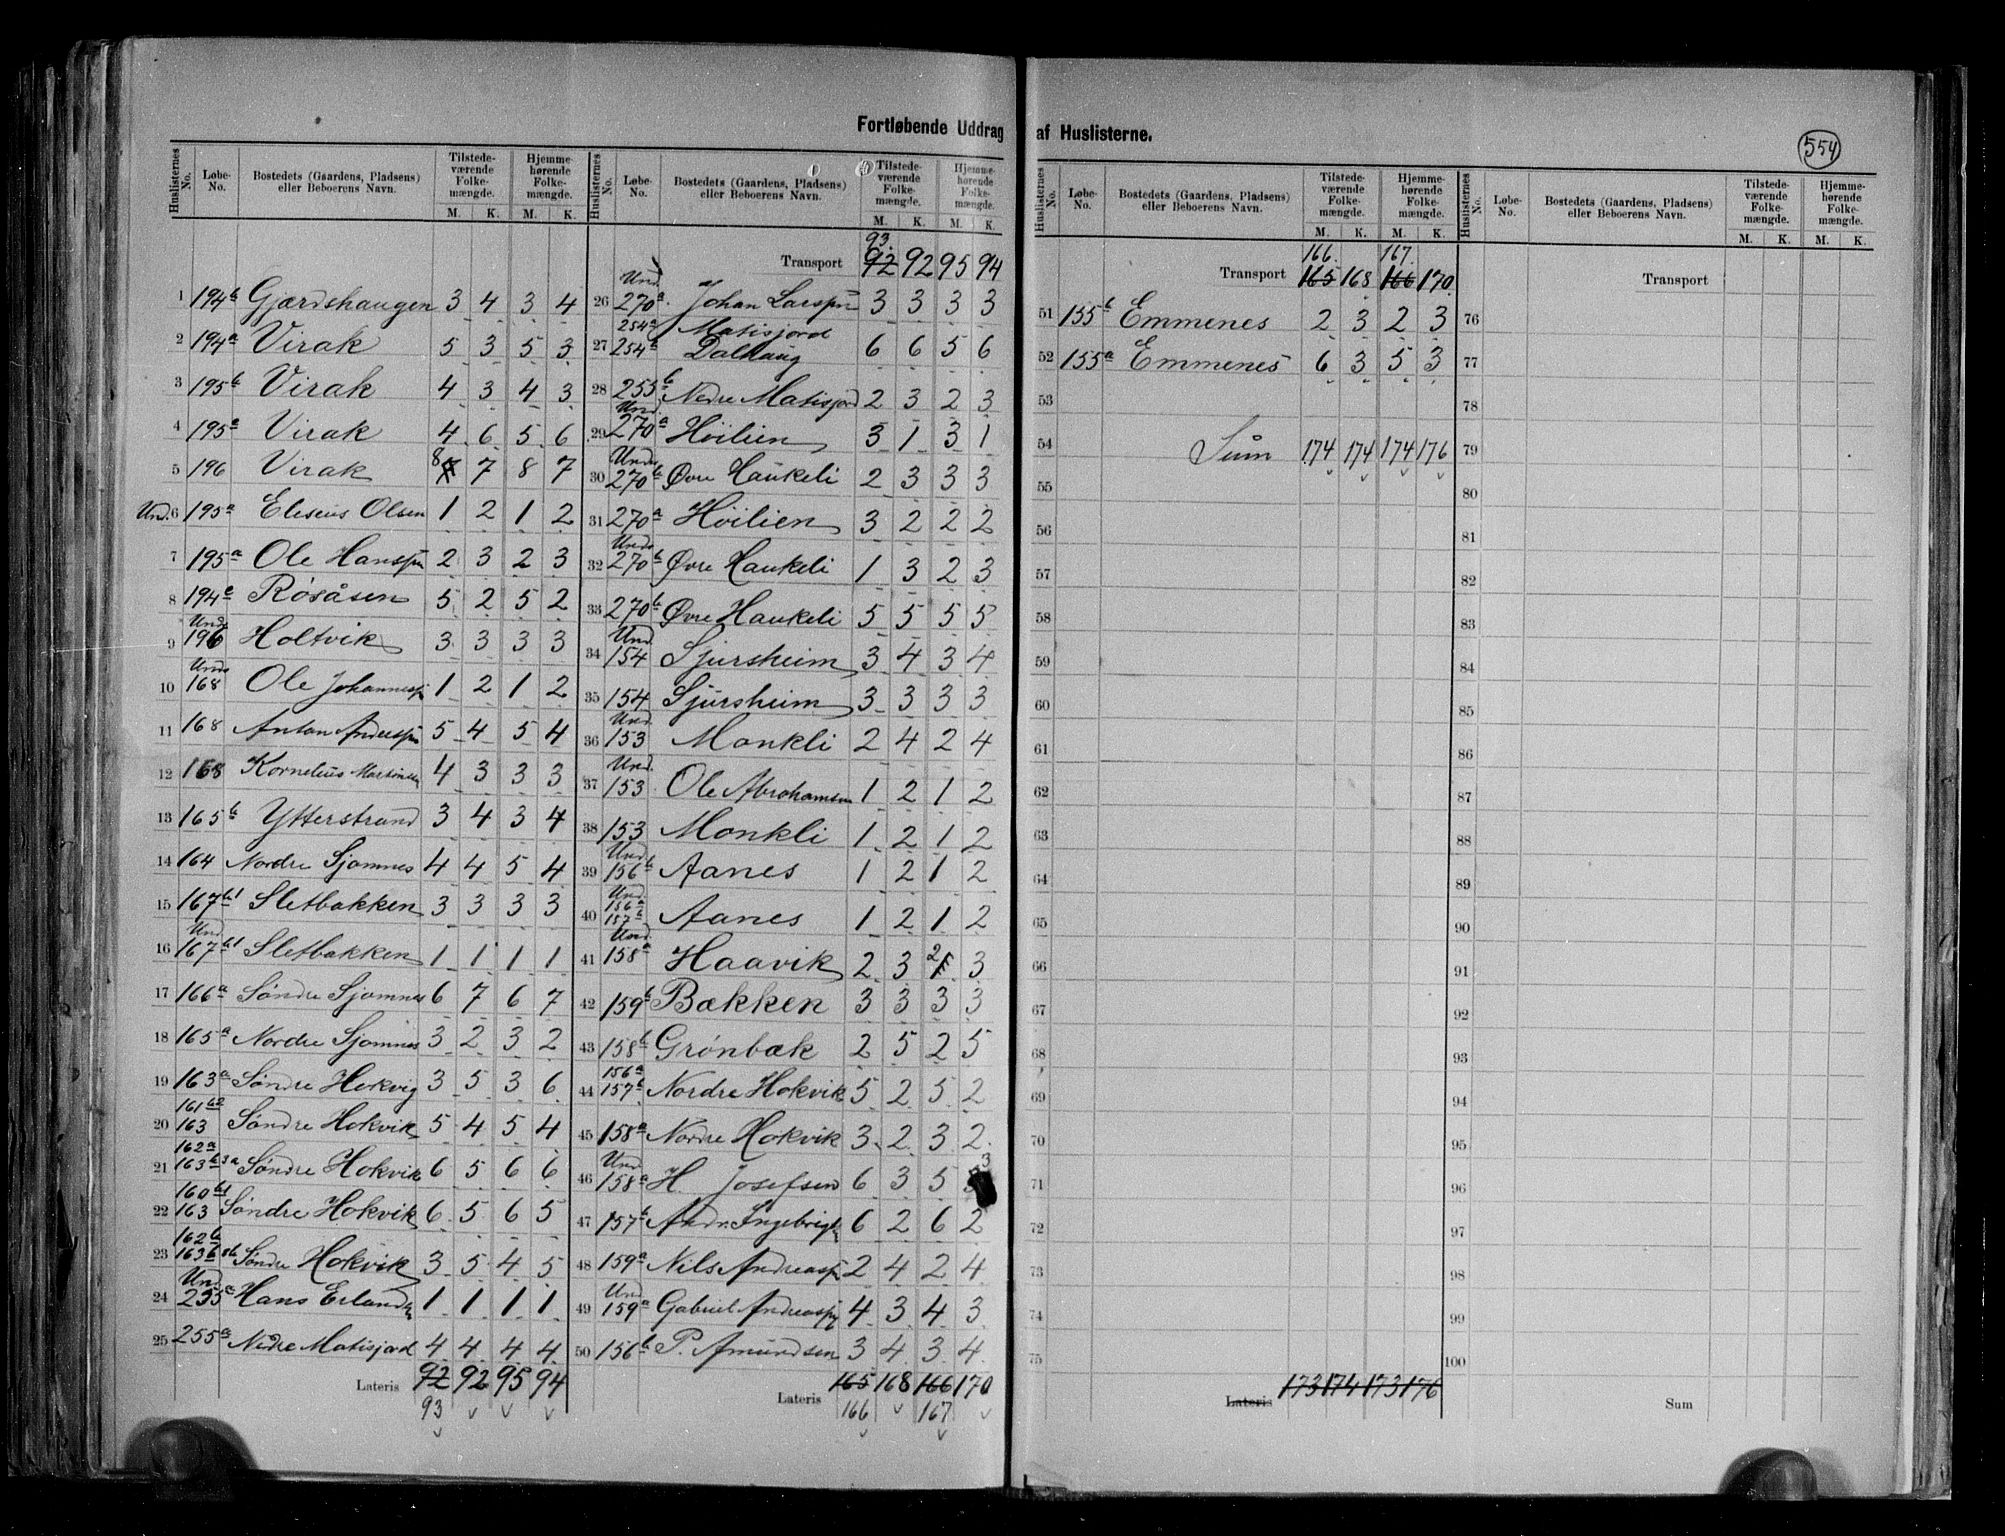 Fortløbende Uddrag af Huslisterne.
554
Huslisternes No. Løbe-No. Bostedets (Gaardens, Pladsens) eller Beboerens Navn. Tilstedeværende Folkemængde. M. K. Hjemmehørende Folkemængde. M. K.
1 194b Gjærdshaugen 3 4 3 4
2 194a Virak 5 3 5 3
3 195b Virak 4 3 4 3
4 195a Virak 4 6 5 6
5 196 Virak 8 7 8 7
Und. 6 195a Eliseus Olsen 1 2 1 2
7 195a Ole Hanssen 2 3 2 3
8 194c Røsåsen 5 2 5 2
9 Und. 196 Holtvik 3 3 3 3
10 Und. 168 Ole Johannessen 1 2 1 2
11 168 Anton Anderssen 5 4 5 4
12 168 Kornelius Martinsen 4 3 3 3
13 165b Ytterstrand 3 4 3 4
14 164 Nordre Sjomnes 4 4 5 4
15 167b1 Sletbakken 3 3 3 3
16 Und. 167b1 Sletbakken 1 1 1 1
17 166a Søndre Sjomnes 6 7 6 7
18 165a Nordre Sjomnes 3 2 3 2
19 163a Søndre Hokvig 3 5 3 6
20 161b2 163 Søndre Hokvik 5 4 5 4
21 162a 163b3a Søndre Hokvik 6 5 6 6
22 160b1 163 Søndre Hokvik 6 5 6 5
23 162b 163b Søndre Hokvik 3 5 4 5
24 Und. 255a Hans Erlandsen 1 1 1 1
25 255a Nedre Matisjord 4 4 4 4
Lateris 92 92 95 94
93
Huslisternes No. Løbe-No. Bostedets (Gaardens, Pladsens) eller Beboerens Navn. Tilstedeværende Folkemængde. M. K. Hjemmehørende Folkemængde. M. K.
93.
Transport 92 92 95 94
26 Und. 270a. Johan Larssen 3 3 3 3
27 254a 254b Matisjord Dalhaug 6 6 5 6
28 255b Nedre Matisjord 2 3 2 3
29 Und. 270a Høilien 3 1 3 1
30 Und. 270b Øvre Haukeli 2 3 3 3
31 270a Høilien 3 2 2 2
32 Und. 270b Øvre Haukeli 1 3 2 3
33 270b Øvre Haukeli 5 5 5 5
34 Und. 154 Sjursheim 3 4 3 4
35 154 Sjursheim 3 3 3 3
36 Und. 153 Monkli 2 4 2 4
37 Und. 153 Ole Abrahamsen 1 2 1 2
38 153 Monkli 1 2 1 2
39 Und. 156b Aanes 1 2 1 2
40 Und. 156a 157b Aanes 1 2 1 2
41 Und. 158a Haavik 2 3 2 3
42 159b Bækken 3 3 3 3
43 158b Grønbæk 2 5 2 5
44 156a 157b Nordre Hokvik 5 2 5 2
45 158a Nordre Hokvik 3 2 3 2
46 Und. 158a H. Josefsen 6 3 5 3
47 157b Andr. Ingebrigts 6 2 6 2
48 159a Nils Andreassen 2 4 2 4
49 Und. 159a Gabriel Andreassen 4 3 4 3
50 156b P. Amundsen 3 4 3 4
Lateris 165 168 166 170
166 167
Huslisternes No. Løbe-No. Bostedets (Gaardens, Pladsens) eller Beboerens Navn. Tilstedeværende Folkemængde. M. K. Hjemmehørende Folkemængde. M. K.
166. 167.
Transport 165 168 166 170
51 155b Emmenes 2 3 2 3
52 155a Emmenes 6 3 5 3
53
54 Sum 174 174 174 176
55
56
57
58
59
60
61
62
63
64
65
66
67
68
69
70
71
72
73
74
75
Lateris 173 174 173 176
Huslisternes No. Løbe-No. Bostedets (Gaardens, Pladsens) eller Beboerens Navn. Tilstedeværende Folkemængde. M. K. Hjemmehørende Folkemængde. M. K.
Transport
76
77
78
79
80
81
82
83
84
85
86
87
88
89
90
91
92
93
94
95
96
97
98
99
100
Sum